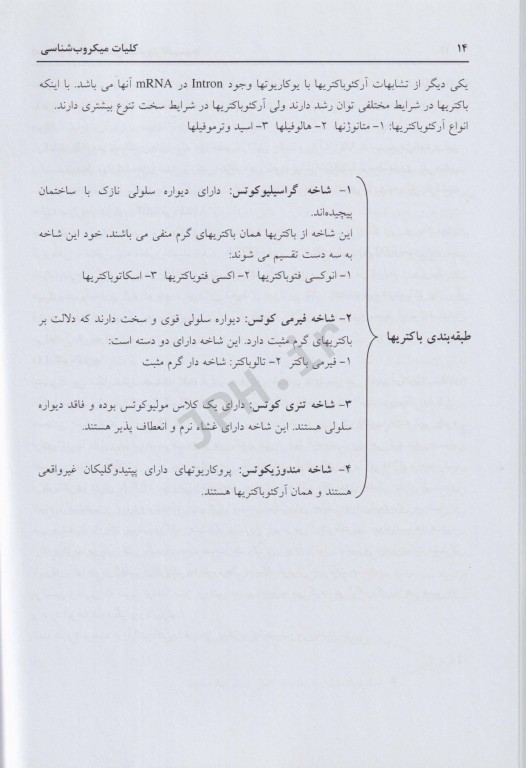 ۱۴
کلیات میکروب‌شناسی
یکی دیگر از تشابهات آرکئوباکتریها با یوکاریوتها وجود Intron در mRNA آنها می باشد. با اینکه
باکتریها در شرایط مختلفی توان رشد دارند ولی آرکئوباکتریها در شرایط سخت تنوع بیشتری دارند.
انواع آرکئوباکتریها: ۱- متانوژنها ۲- هالوفیلها ۳- اسید وترموفیلها
طبقه‌بندی باکتریها
۱- شاخه گراسیلیوکوتس: دارای دیواره سلولی نازک با ساختمان
پیچیده‌اند.
این شاخه از باکتریها همان باکتریهای گرم منفی می باشند، خود این شاخه
به سه دست تقسیم می شوند:
۱- انوکسی فتوباکتریها ۲- اکسی فتوباکتریها ۳- اسکاتوباکتریها
۲- شاخه فیرمی کوتس: دیواره سلولی قوی و سخت دارند که دلالت بر
باکتریهای گرم مثبت دارد. این شاخه دارای دو دسته است:
۱- فیرمی باکتر ۲- تالوباکتر: شاخه دار گرم مثبت
۳- شاخه تنری کوتس: دارای یک کلاس مولیوکوتس بوده و فاقد دیواره
سلولی هستند. این شاخه دارای غشاء نرم و انعطاف پذیر هستند.
۴- شاخه مندوزیکوتس: پروکاریوتهای دارای پپتیدوگلیکان غیرواقعی
هستند و همان آرکئوباکتریها هستند.
JPH.ir